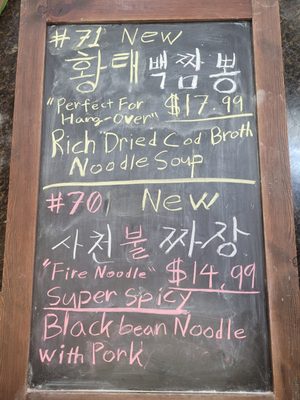 #71 New
황태백짬뽕
"Perfect For $17.99
Hang-Over"
Rich Dried Cod Broth
Noodle Soup
#70 New
사천불짜장
"Fire Noodle" $14.99
Super Spicy
Blackbean Noodle
with Pork